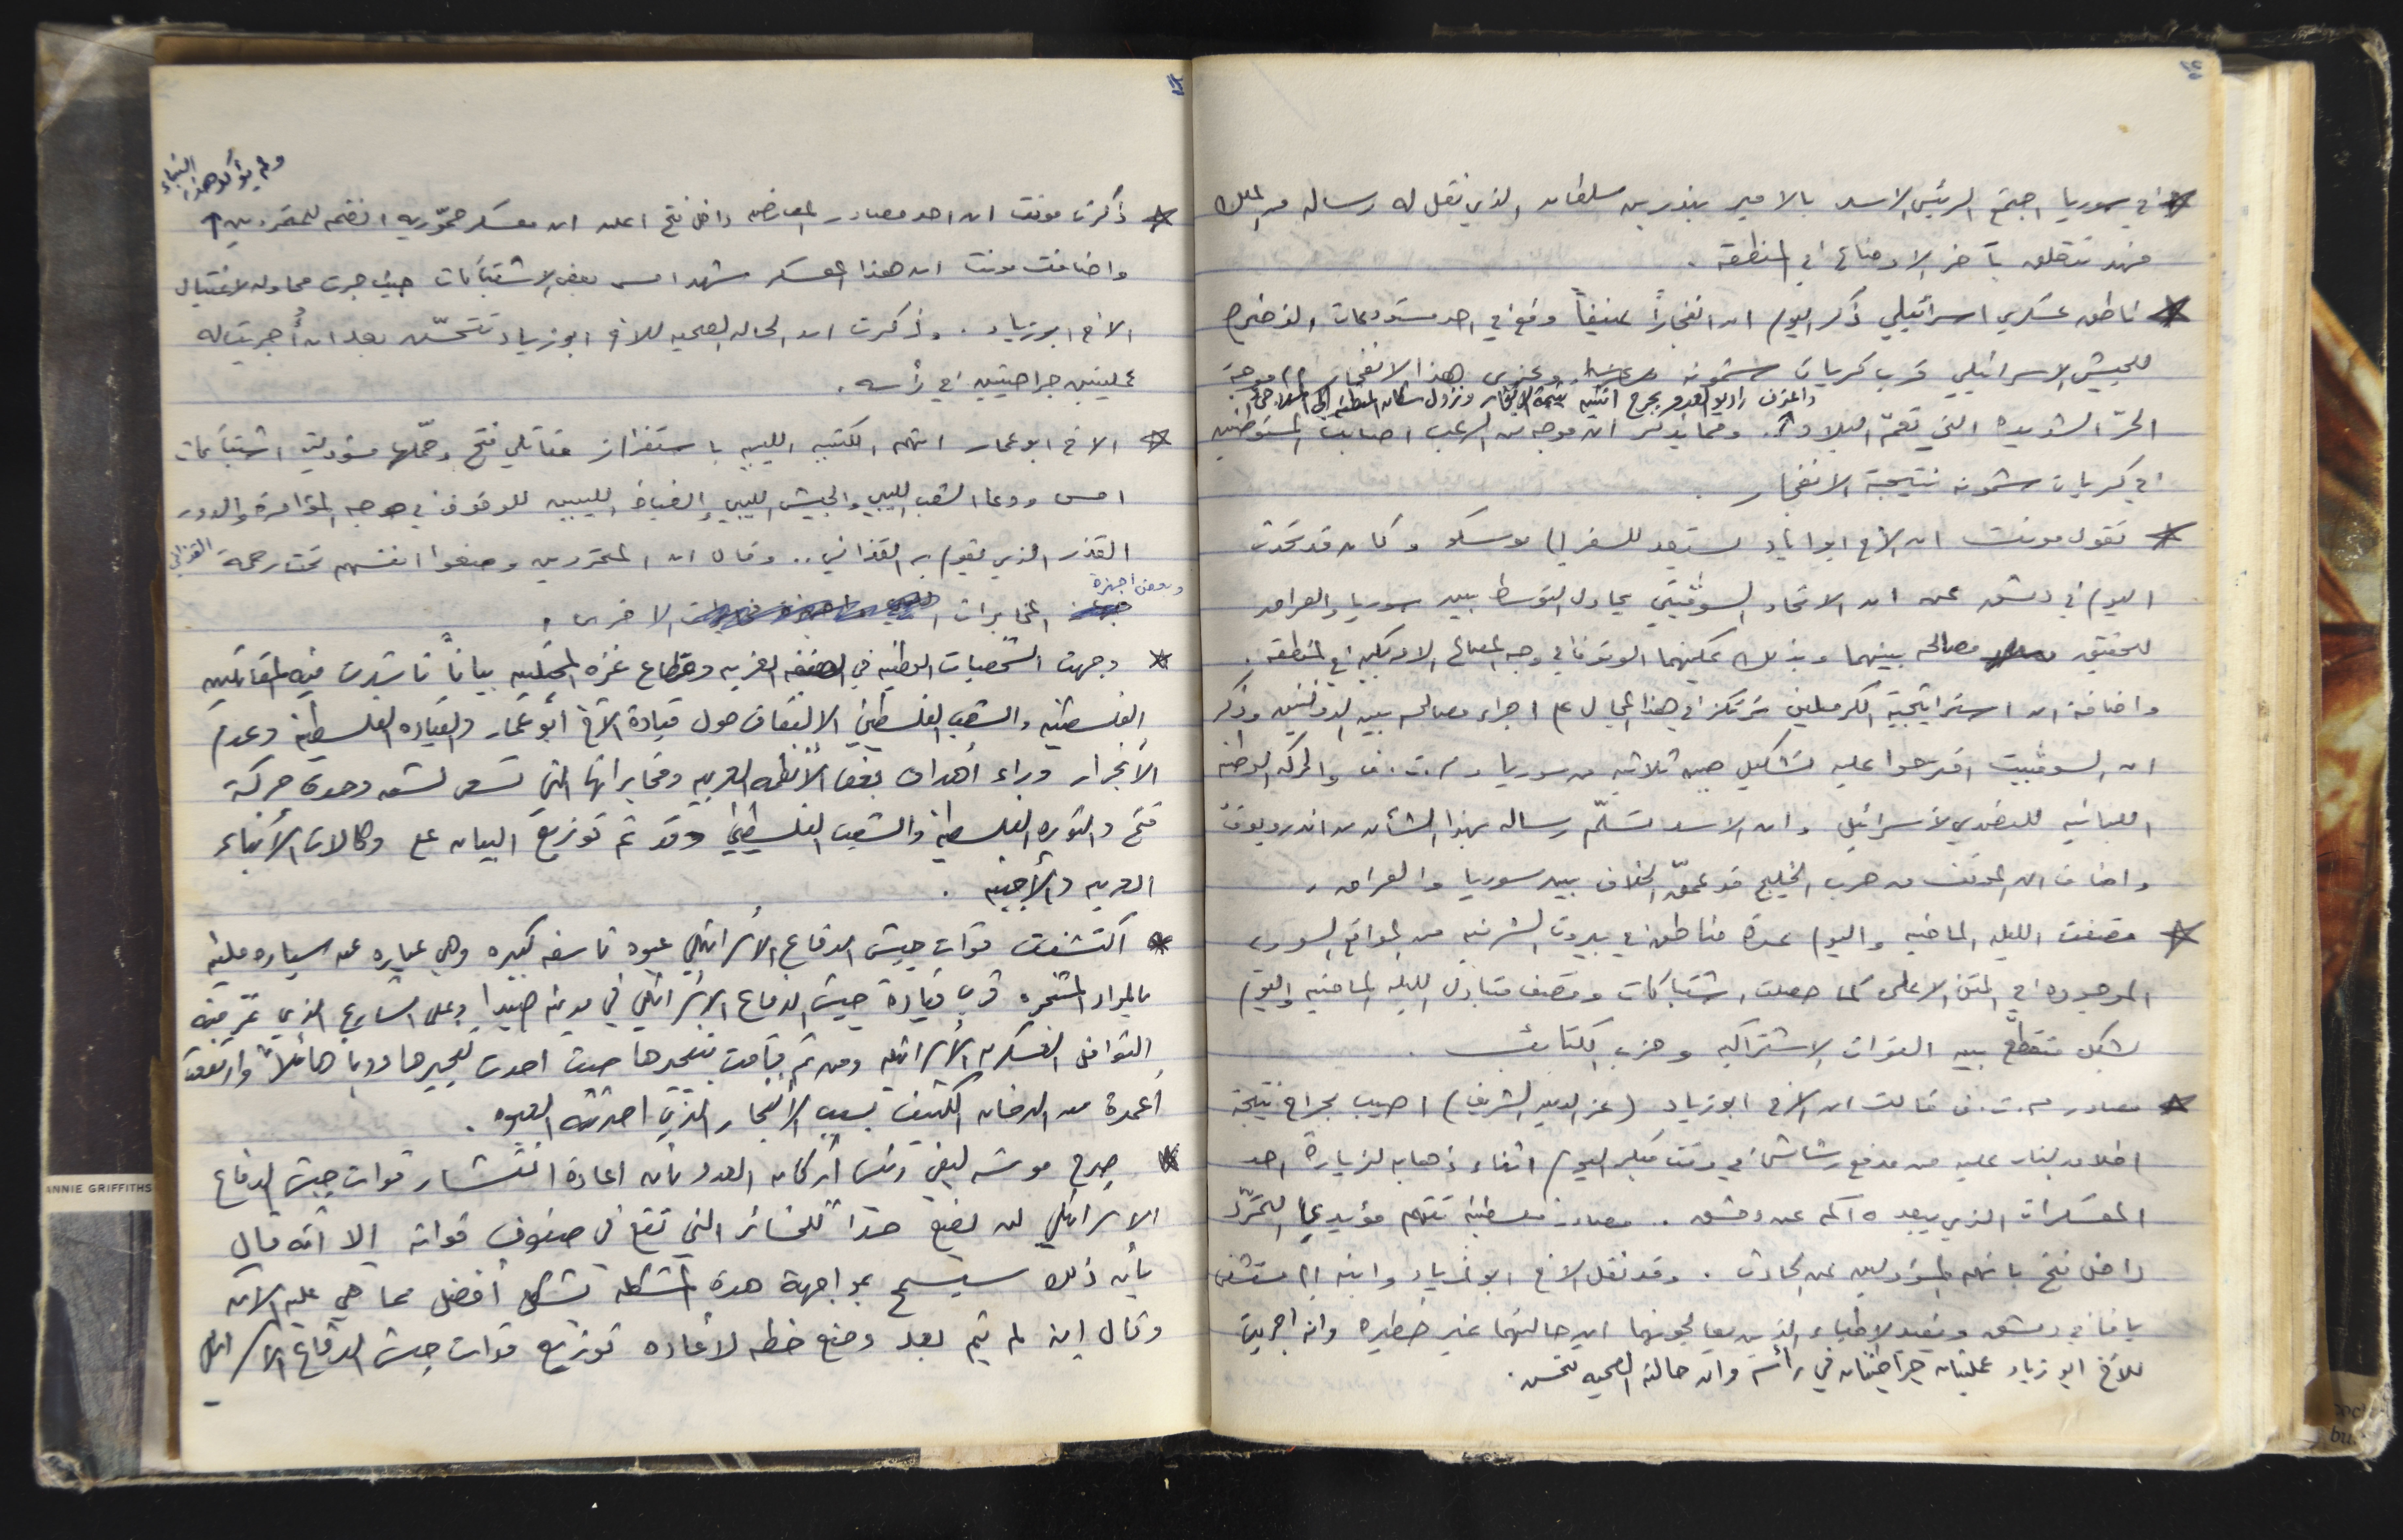 * في سوريا اجتمع الرئيس الاسد بالامير بندر بن سلطان الذي نقل له رساله من الملك
فهد تتعلق بآخر الاوضاع في المنطقة .
* ناطق عسكري اسرائيلي ذكر اليوم ان انفجاراً عنيفاً وقع في احد مستودعات الذخيره
للجيش الاسرائيلي قرب كريات شمونه وعزى هذا الانفجار الى موجة
واعترف راديو العدو بجرح اثنين نتيجة الانفجار ونزول سكان المنطقه الى الملاجئ
الحرّ الشديده التي تعمّ البلاد . ومما يذكر ان موجه من الرعب اصابت المستوطنين
في كريات شمونه نتيجة الانفجار .
* تقول مونت ان الاخ ابو اياد يستعد للسفر الى موسكو وكان قد تحدث
اليوم في دمشق عن ان الاتحاد السوفيتي يحاول التوسط بين سوريا والعراق
لتحقيق مصالحه بينهما وبذلك يمكنهما الوقوف في وجه المصالح الامريكيه في المنطقه .
واضافة ان استراتيجية الكرملين ترتكز في هذا المجال على اجراء مصالحه بين الدولتين وذكر
ان السوفييت اقترحوا عليه تشكيل جبهه ثلاثيه من سوريا و م.ت.ف والحركه الوطنيه
اللبنانيه للتصدي لاسرائيل وان الاسد تسلّم رساله بهذا الشأن من اندروبوف
واضاف ان الموقف من حرب الخليج قد عمّق الخلاف بين سوريا والعراق .
* قصفت الليله الماضيه واليوم عدة مناطق في بيروت الشرقيه من المواقع السوريه
الموجوده في المتن الاعلى كما حصلت اشتباكات وقصف متبادل الليله الماضيه واليوم
بشكل متقطّع بين القوات الاشتراكيه وحزب الكتائب .
* مصادر م.ت.ف قالت ان الاخ ابو زياد (عز الدين الشريف) اصيب بجراح نتيجة
اطلاق النار عليه من مدفع رشاش في وقت مبكر اليوم اثناء ذهابه لزيارة احد
المعسكرات الذي يبعد ٥ كم عن دمشق .. مصادر فلسطينيه تتهم مؤيدي التمرّد
داخل فتح بانهم المسؤولين عن الحادث . وقد نقل الاخ ابو زياد وابنه الى مستشفى
يافا في دمشق ويفيد الاطباء الذين يعالجونهما ان حالتهما غير خطيره وانه اجريت
للاخ ابو زياد عمليتان جراحيتان في رأسه وان حالته الصحيه تتحسن .
ولم يؤكد هذا النباء
* ذكرت مونت ان احد مصادر المعارضه داخل فتح اعلن ان معسكر حمّوريه انضم للمتمردين ↑
واضافت مونت ان هذا المعسكر شهد امس بعض الاشتباكات حيث جرت محاوله لاغتيال
الاخ ابو زياد . وذكرت ان الحاله الصحيه للاخ ابو زياد تتحسّن بعد ان أُجريت له
عمليتين جراحيتين في رأسه .
* الاخ ابو عمار اتهم الكتيبه الليبيه باستفزاز مقاتلي فتح وحمّلها مسؤولية اشتباكات
امس ودعا الشعب الليبي والجيش الليبي والضباط الليبيين للوقوف في وجه المؤامرة والدور
القذر الذي يقوم به القذافي .. وقال ان المتمردين وضعوا انفسهم تحت رحمة القذافي
وبعض اجهزة
المخابرات الاخرى .
* وجهت الشخصيات الوطنيه في الضفه الغربيه وقطاع غزه المحتلين بياناً ناشدت فيه المقاتلين
الفلسطنيه والشعب الفلسطيني الالتفاف حول قيادة الأخ أبو عمار والقياده الفلسطينه وعدم
الأنجرار وراء أهداف بعض الأنظمه العربيه ومخابراتها التي تسعى لشق وحدة حركة
فتح والثوره الفلسطينيه والشعب الفلسطيني وقد تم توزيع البيان على وكالات الأنباء
العربيه والأجنبيه .
* اكتشفت قوات جيش الدفاع الأسرائيلي عبوه ناسفه كبيره وهي عباره عن سياره مليئه
بالمواد المتفجره قرب قيادة جيش الدفاع الاسرائيلي في مدينة صيدا وعلى الشارع الذي تمر فيه
القوافل العسكريه الأسرائيليه ومن ثم قامت بتفجيرها حيث احدث تفجيرها دوياً هائلاً وارتفعت
أعمدة من الدخان الكثيف بسبب الأنفجار الذي احدثته العبوه .
* صرح موشه ليفي رئيس أركان العدو بأن اعادة انتشار قوات جيش الدفاع
الاسرائيلي لن تضع حداً للخسائر التي تقع في صفوف قواته الا أنه قال
بأن ذلك سيسمح بمواجهة هذه المشكله بشكل أفضل مما هي عليه الآن
وقال إنه لم يتم بعد وضع خطه لأعاده توزيع قوات جيش الدفاع الاسرائيلي
ANNIE GRIFFITHS